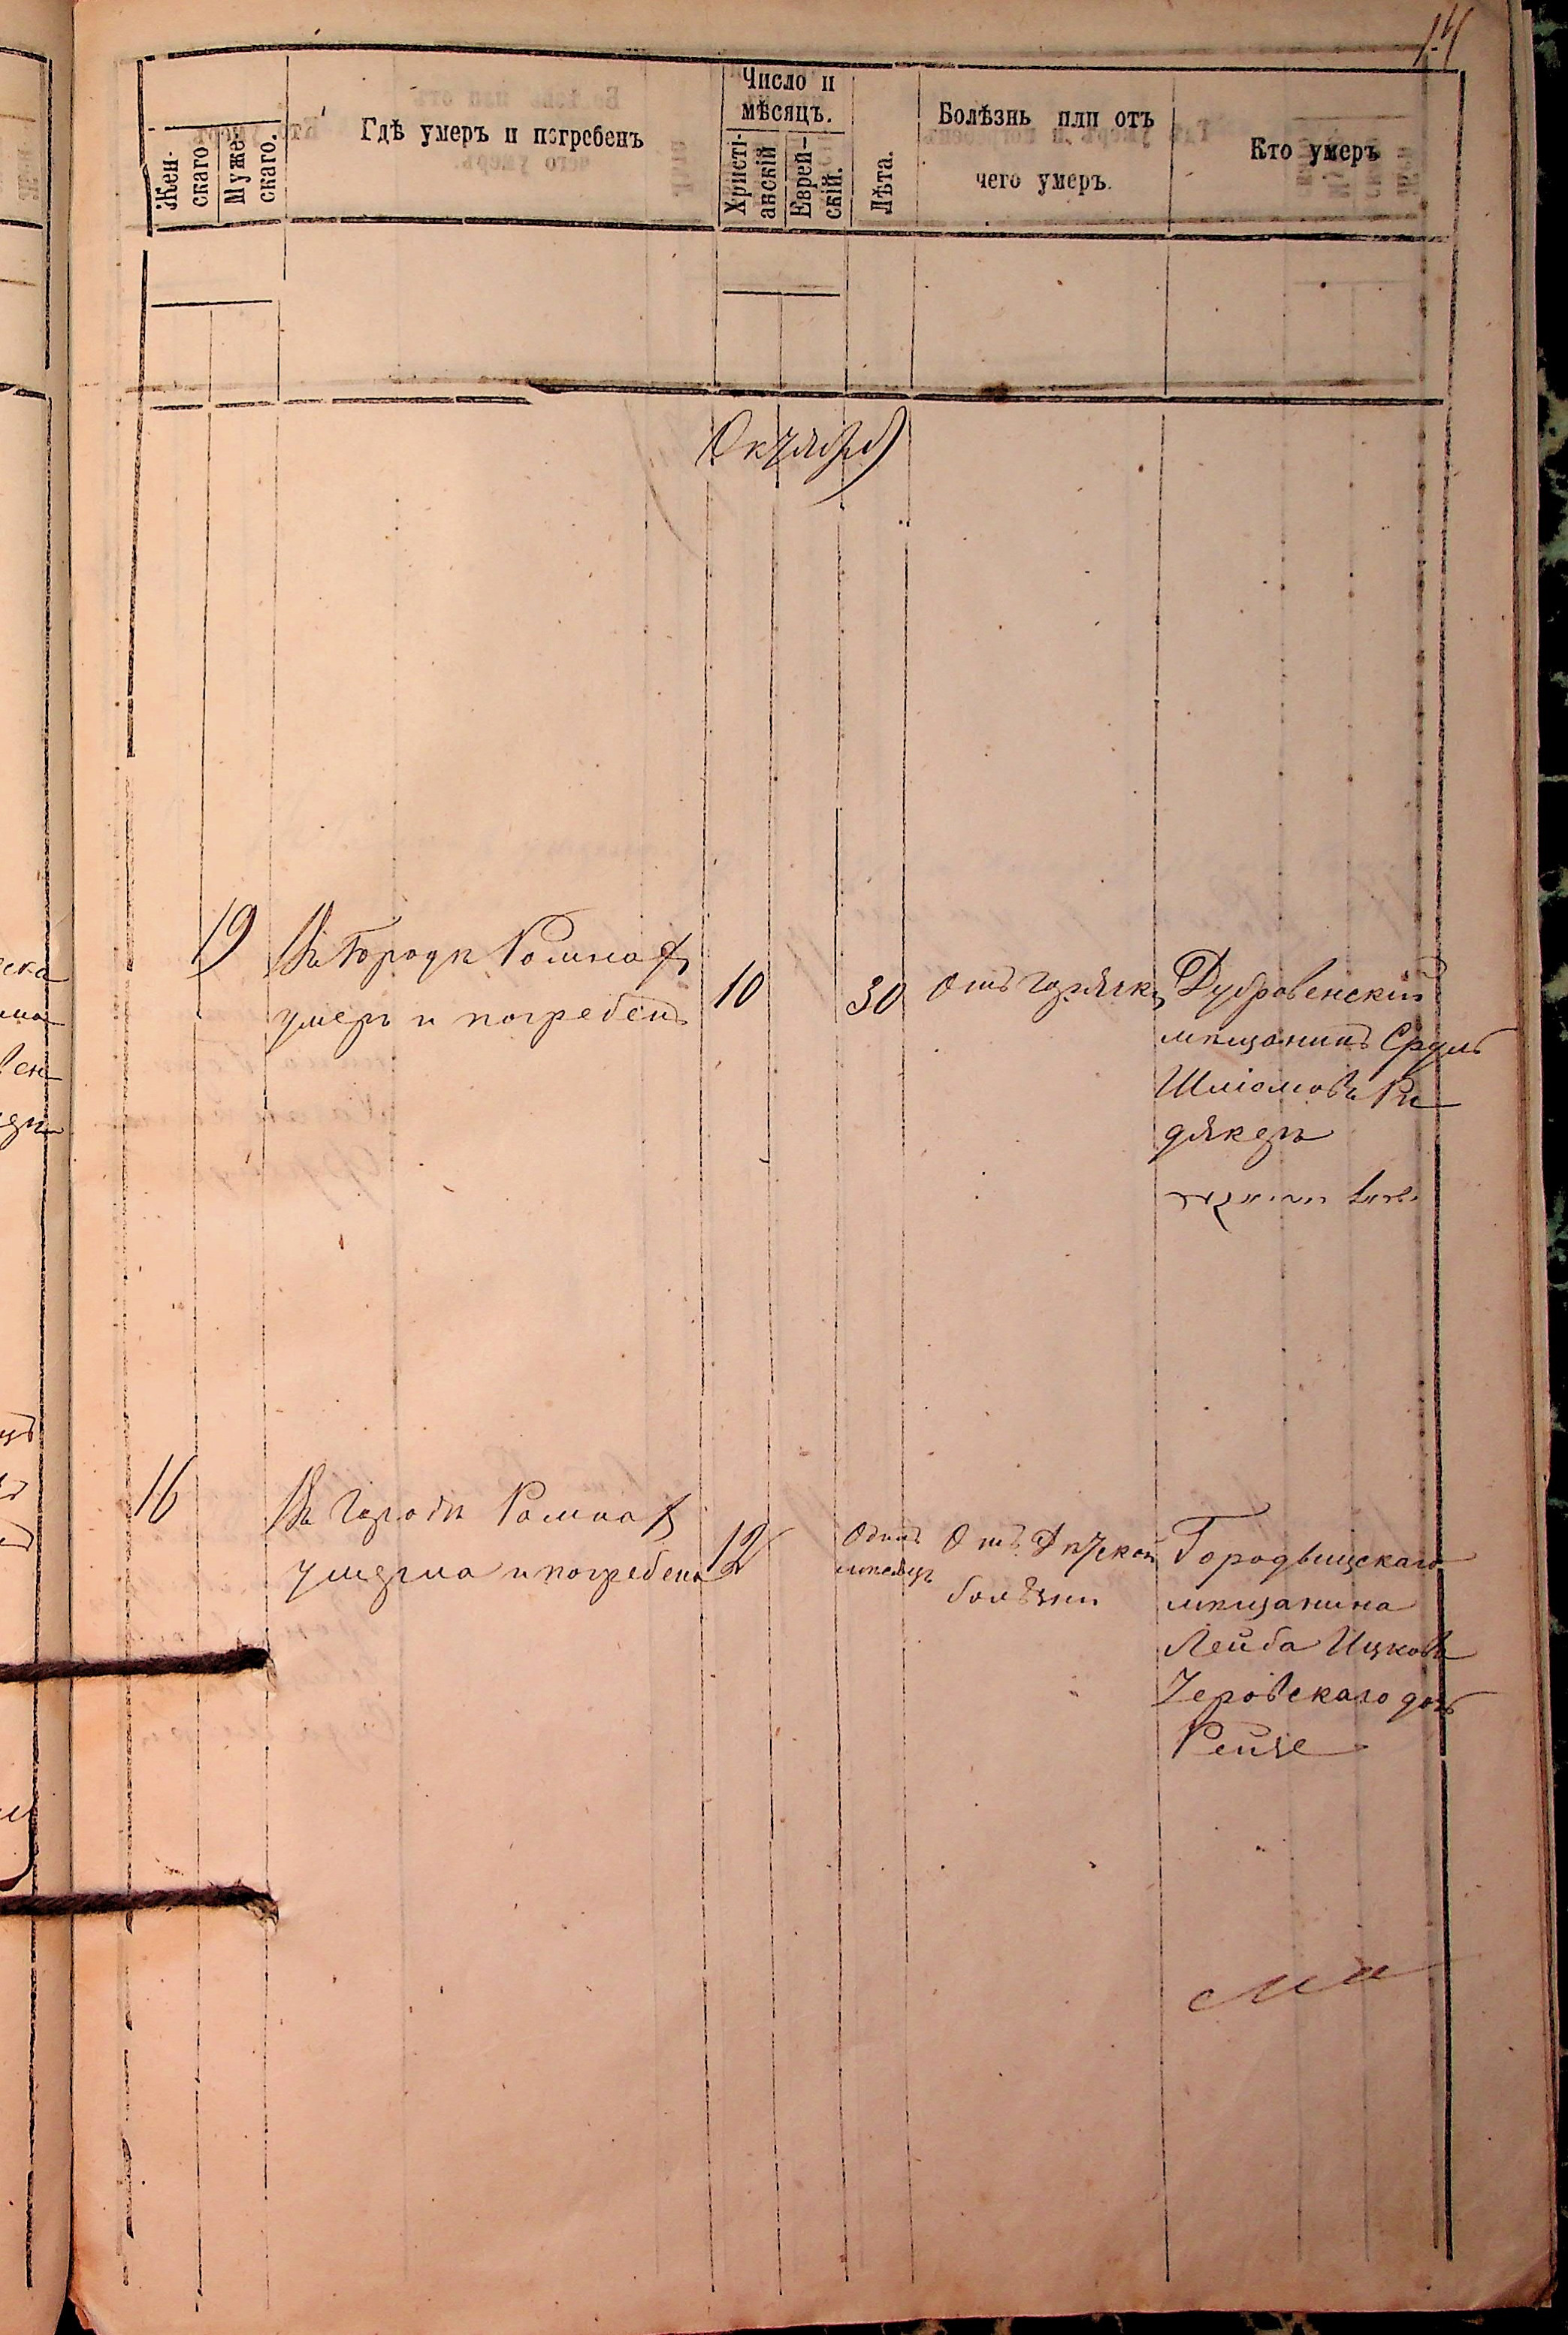 14
Жен-
скаго
Муже-
скаго.
Гдѣ умеръ и погребенъ
Число и
мѣсяцъ.
Христі-
анскій
Еврей-
скій.
Лѣта.
Болѣзнь или отъ
чего умеръ.
Кто умеръ
Октябрь
19
Въ Городѣ Ромнахъ
умеръ и погребенъ
10
30
Отъ горячки
Дубровенскій
мѣщанинъ Сруль
Шліомовъ
16
Въ Городѣ Ромнахъ
умерла и погребена
12
Одинъ
мѣсяцъ
Отъ Дѣтской
болѣзни
Городыщскаго
мѣщанина
Лейба Ицковъ
Черовскаго дочь
Рейзе